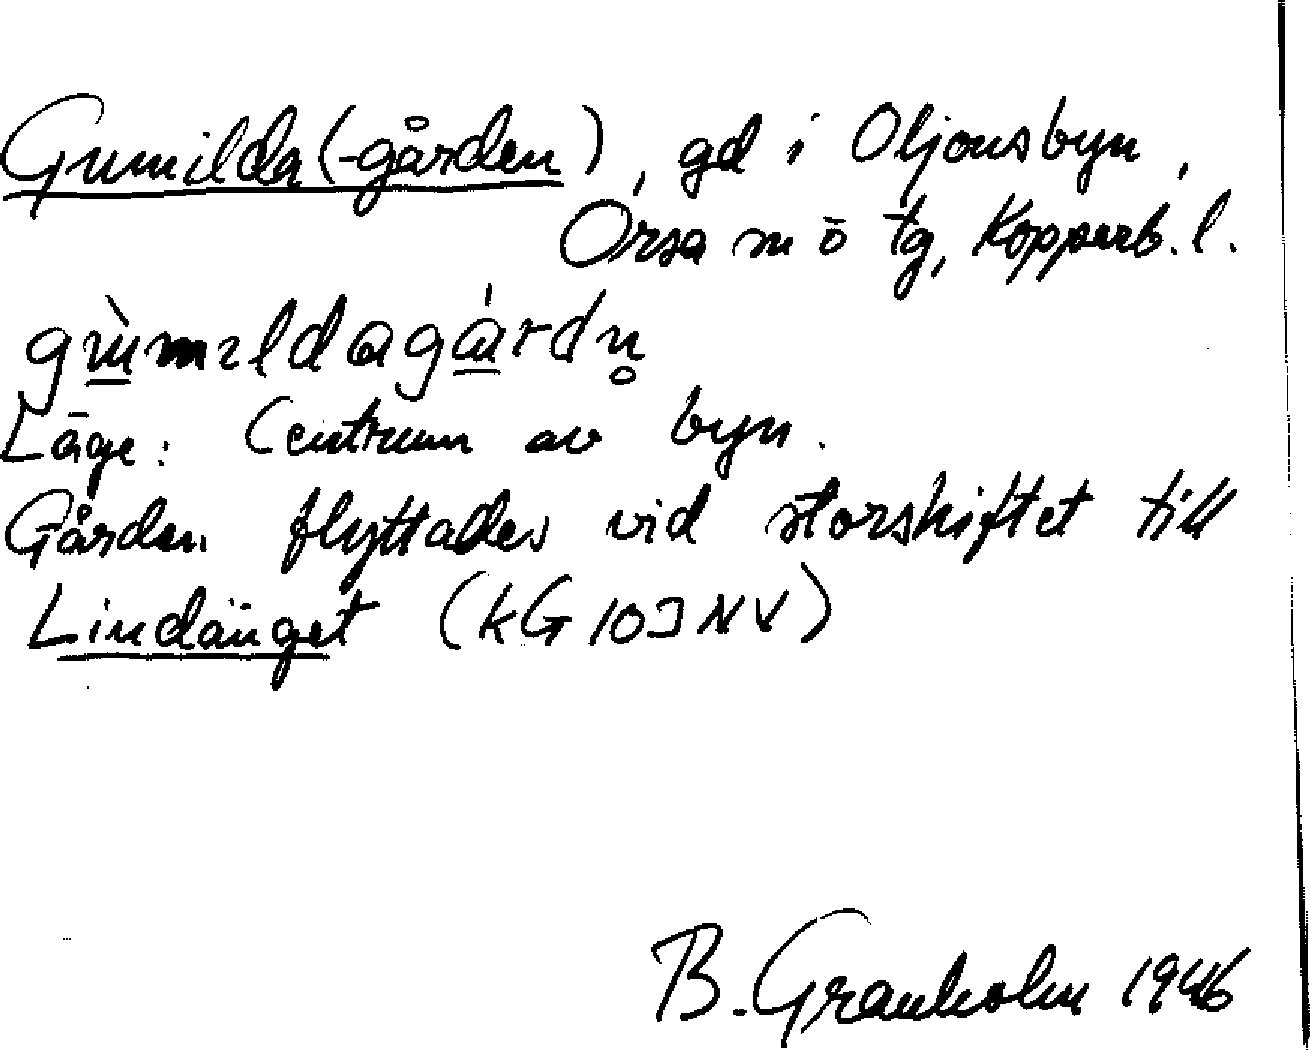 Gumilda(-gården), gd i Oljonsbyn,
Orsa sn ö tg, Kopparb. l.
gùmɪldagárdn̥
Läge: Centrum av byn.
Gården flyttades vid storskiftet till
Lindänget (KG 10J NV)
B. Granholm 1946